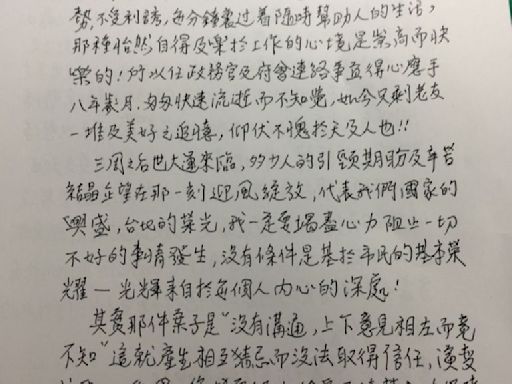 勢,不受利誘,每分鐘裏过着隨時幫助人的生活,
那種怡然自得及樂於工作的心境是崇高而快
樂的!所以任政務官及府會連絡事宜得心應手
八年歲月,匆匆快速流逝而不知覺,如今只剩老友
一堆及美好之追憶,仰伏不愧於天及人也!!
三周之后世大運來臨,多少人的引頸期盼及辛苦
結晶企望在那一刻迎風綻放,代表我們國家的
興盛,台北的榮光,我一定要竭盡心力阻止一切
不好的事情發生,沒有條件是基於市民的基本榮
耀—光輝來自於每個人內心的深處!
其實那件案子是"沒有溝通,上下意見相左而竟
不知"這就產生相互猜忌而沒法取得信任,演變